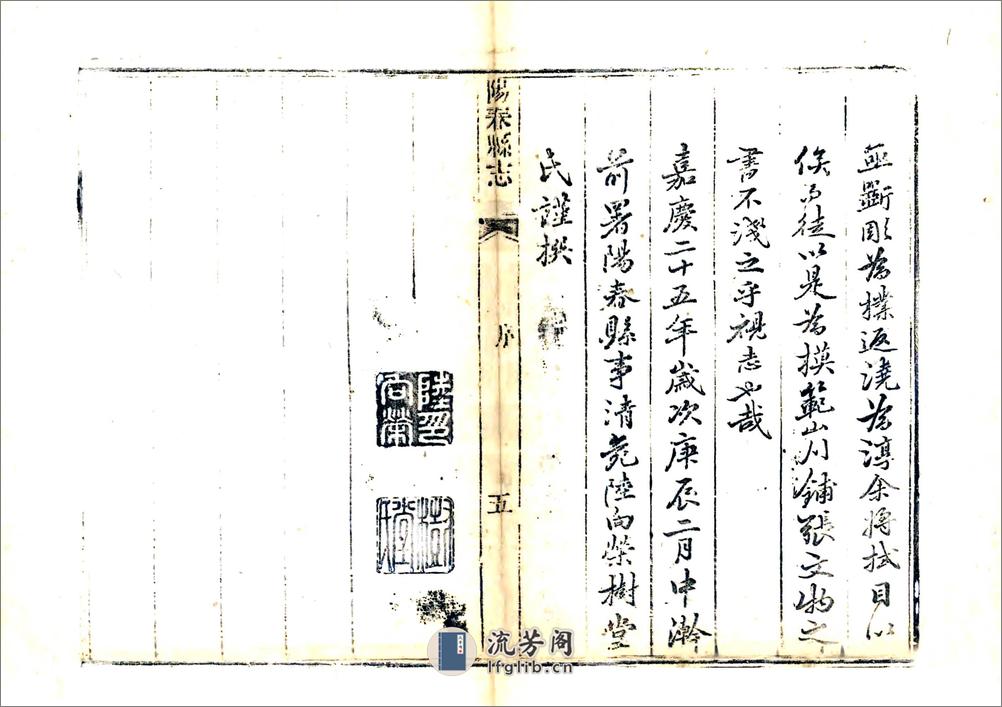 亟斲彫為樸返澆為淳余將拭目以
俟而徒以是為摸範山川鋪張文物之
書不淺之乎視志也哉
嘉慶二十五年歲次庚辰二月中澣
前署陽春縣事清苑陸向榮樹堂
氏謹撰
陽春縣志
序
五
陸向榮印
流芳阁
lfglib.cn